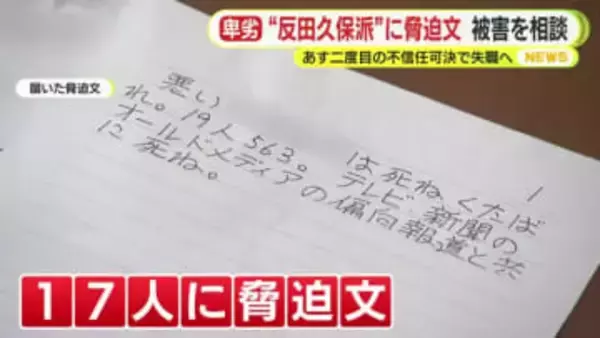 卑劣 “反田久保派”に脅迫文 被害を相談
あす二度目の不信任可決で失職へ NEWS
届いた脅迫文
1
悪い は死ね、くたば
れ。19人563。テレビ、新聞の
オールドメディアの偏向報道と共
に死ね。
17人に脅迫文